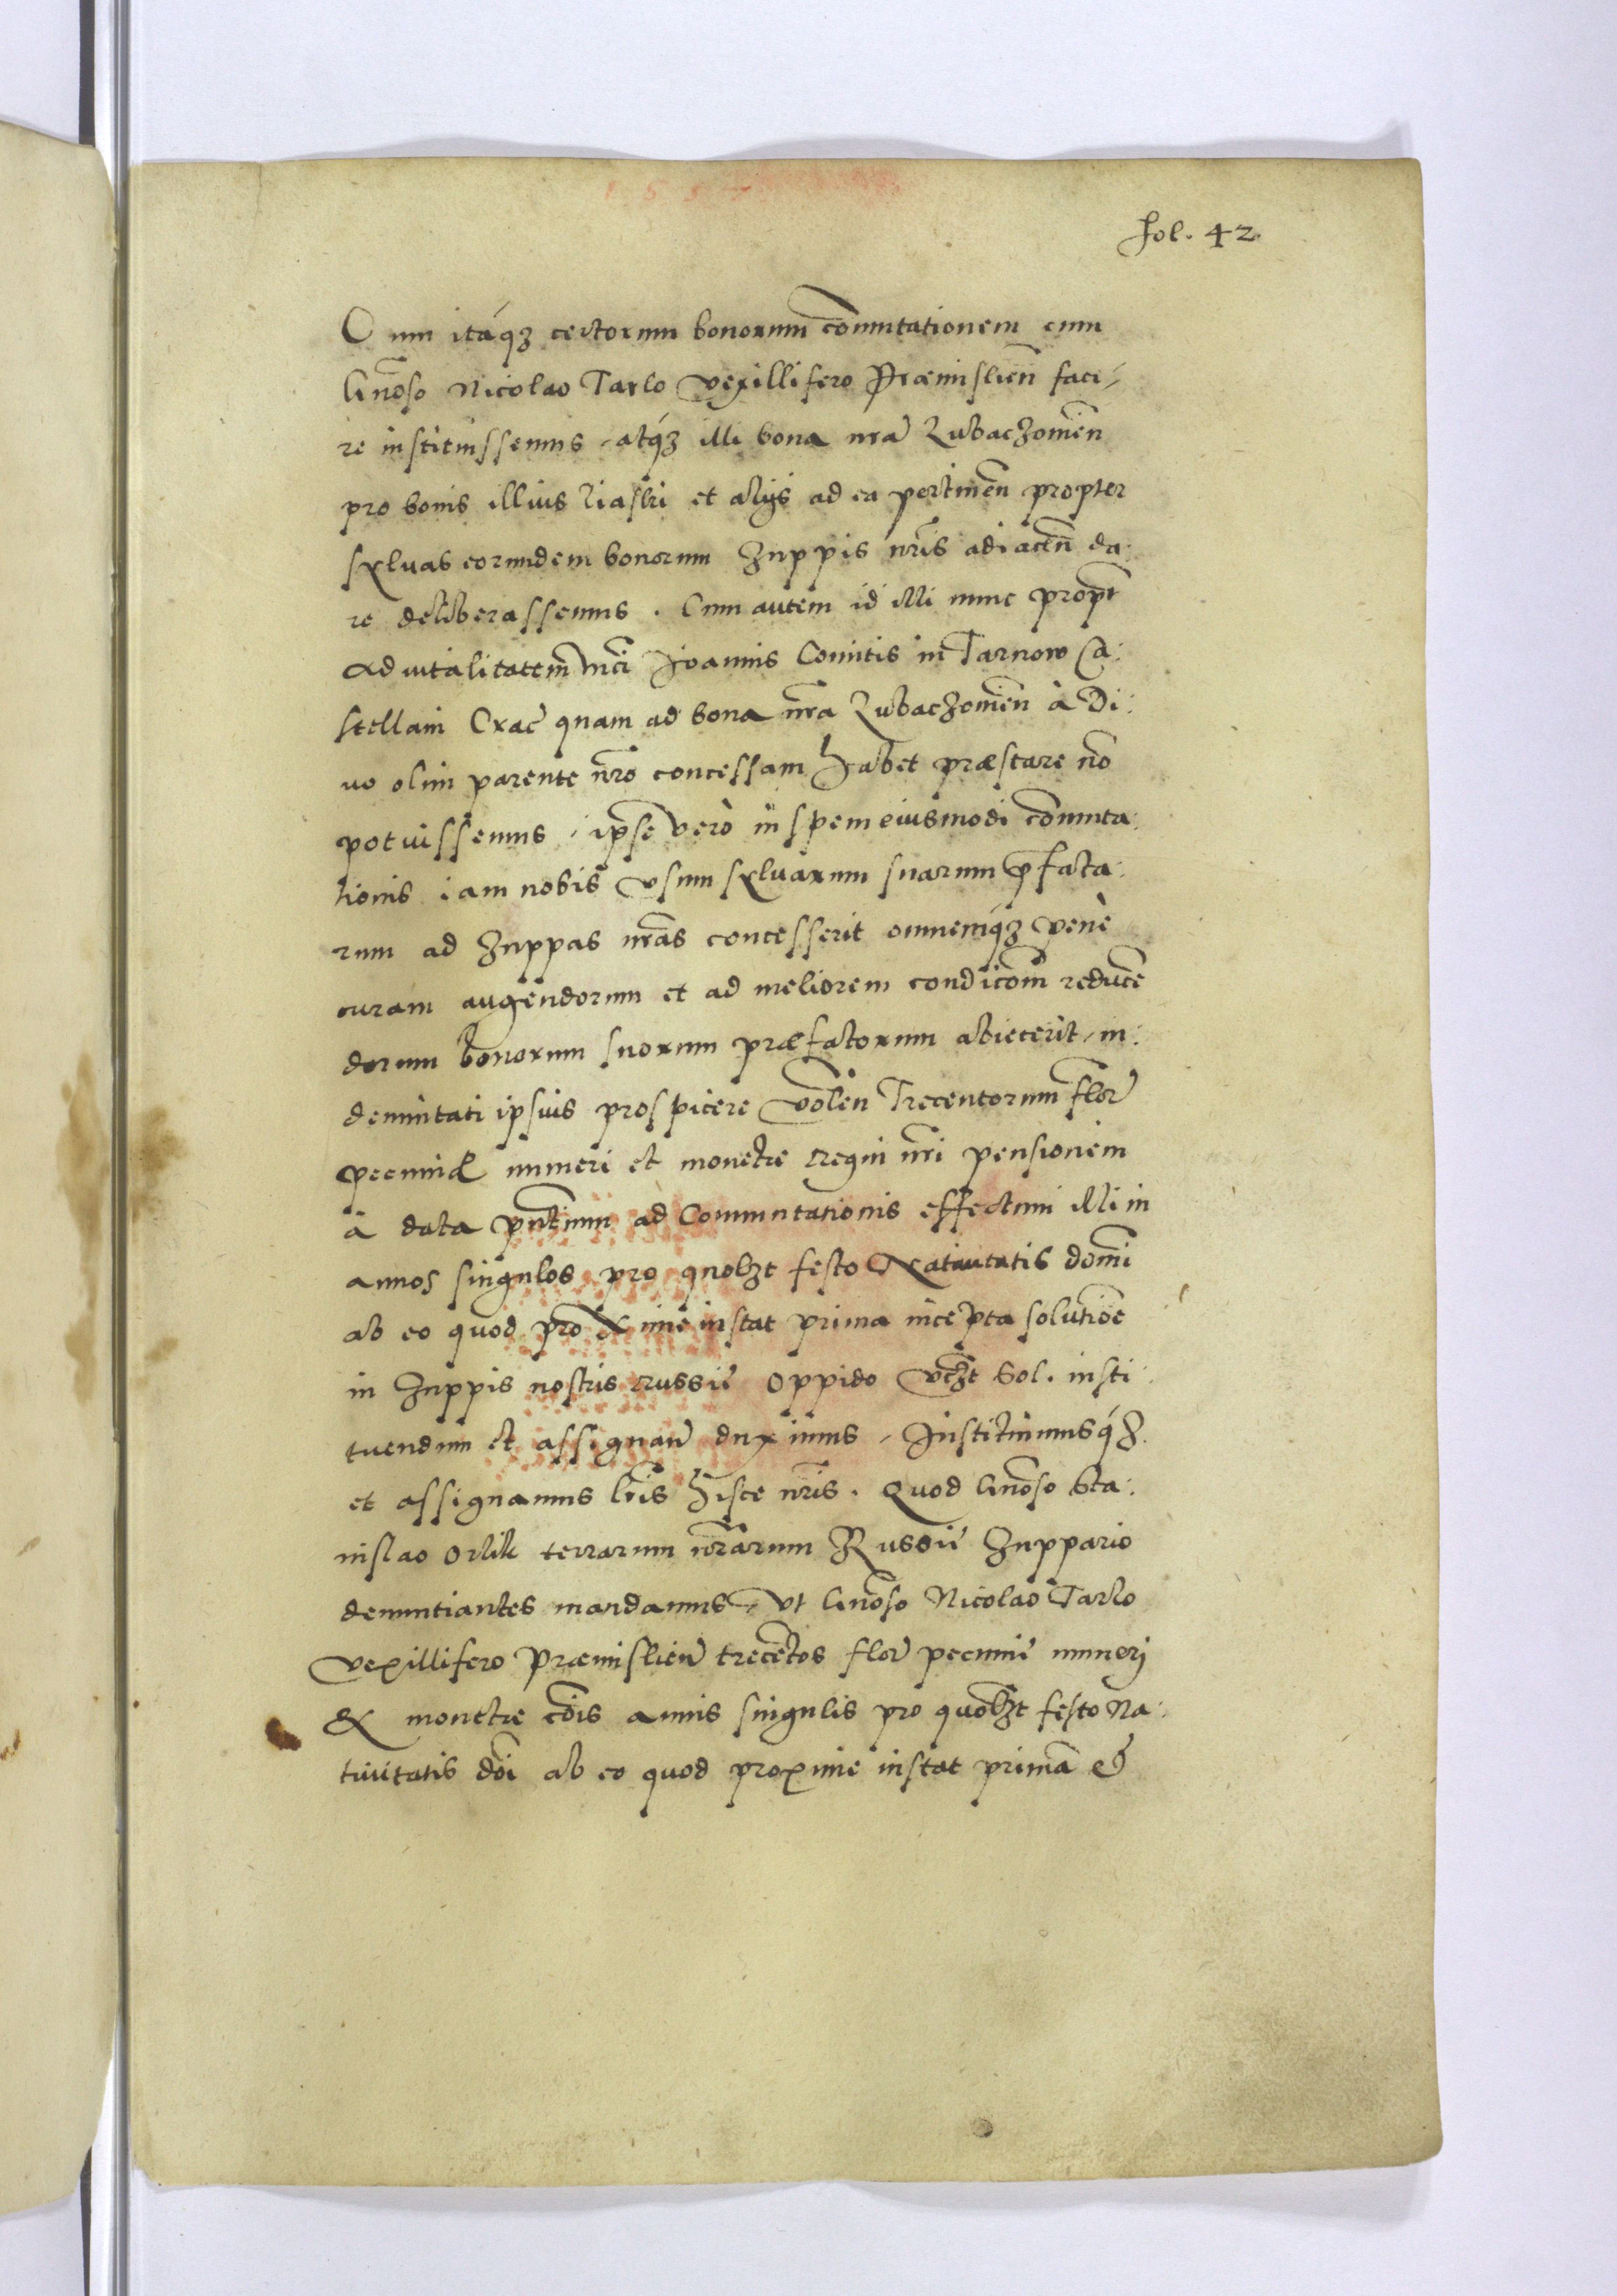 1557
fol. 42
Cum itáq3 certorum bonorum com̄utationem cum
Gn̄oso Nicolao Tarlo vexillifero Præmislien̄ face,
re instituissemus, atq́3 illi bona nr̄a Lubaczowien̄
pro bonis illius Liaski et alijs ad ea pertinen̄ propter
sylvas eorumdem bonorum Zuppis nr̄is adiacen̄ da:
re deliberassemus. Cum autem id illi nunc propt̄
advitalitatem Mci Joannis Comitis in Tarnow Ca:
stellani Crac̄ quam ad bona nr̄a Lubaczowien̄ à Di:
vo olim parente nr̄o concessam habet præstare nō
potuissemus, ipse verò in spem eiusmodi com̄uta:
tionis iam nobis vsum sylvarum suarum p̄facta:
rum ad Zuppas nr̄as concesserit omnemq́3 penè
curam augendorum et ad meliorem condicōm reducē
dorum bonorum suorum præfatorum abiecerit, in:
demnitati ipsius prospicere volen̄ Trecentorum flor̄
pecuniæ numeri et monetæ regni nr̄i pensionem
à data pn̄tium ad Commutationis effectum illi in
annos singulos pro quolz̄t festo Nativitatis domī
ab eo quod proxime instat prima incepta solutiōe
in Zuppis nostris Russiæ oppido vcz̄t Sol. insti:
tuendum et assignan̄ duximus, Instituimusq́3
et assignamus lr̄is hisce nr̄is. Quod Gn̄oso Sta:
nislao Orlik terrarum nr̄arum Russiæ Zuppario
denuntiantes mandamus, vt Gn̄oso Nicolao Tarlo
vexillifero Præmislien̄ trecētos flor̄ pecuniæ numeri
& monetæ cōis annis singulis pro quolz̄t festo Na:
tivitatis dōi ab eo quod proxime instat primā &